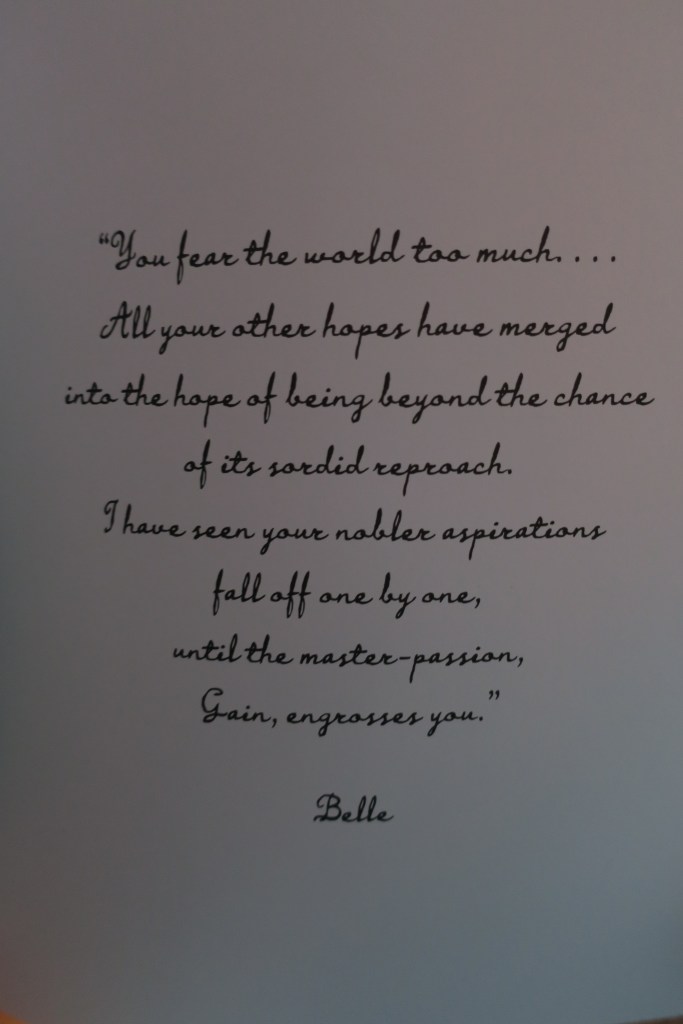 “You fear the world too much. . . .
All your other hopes have merged
into the hope of being beyond the chance
of its sordid reproach.
I have seen your nobler aspirations
fall off one by one,
until the master-passion,
Gain, engrosses you.”
Belle